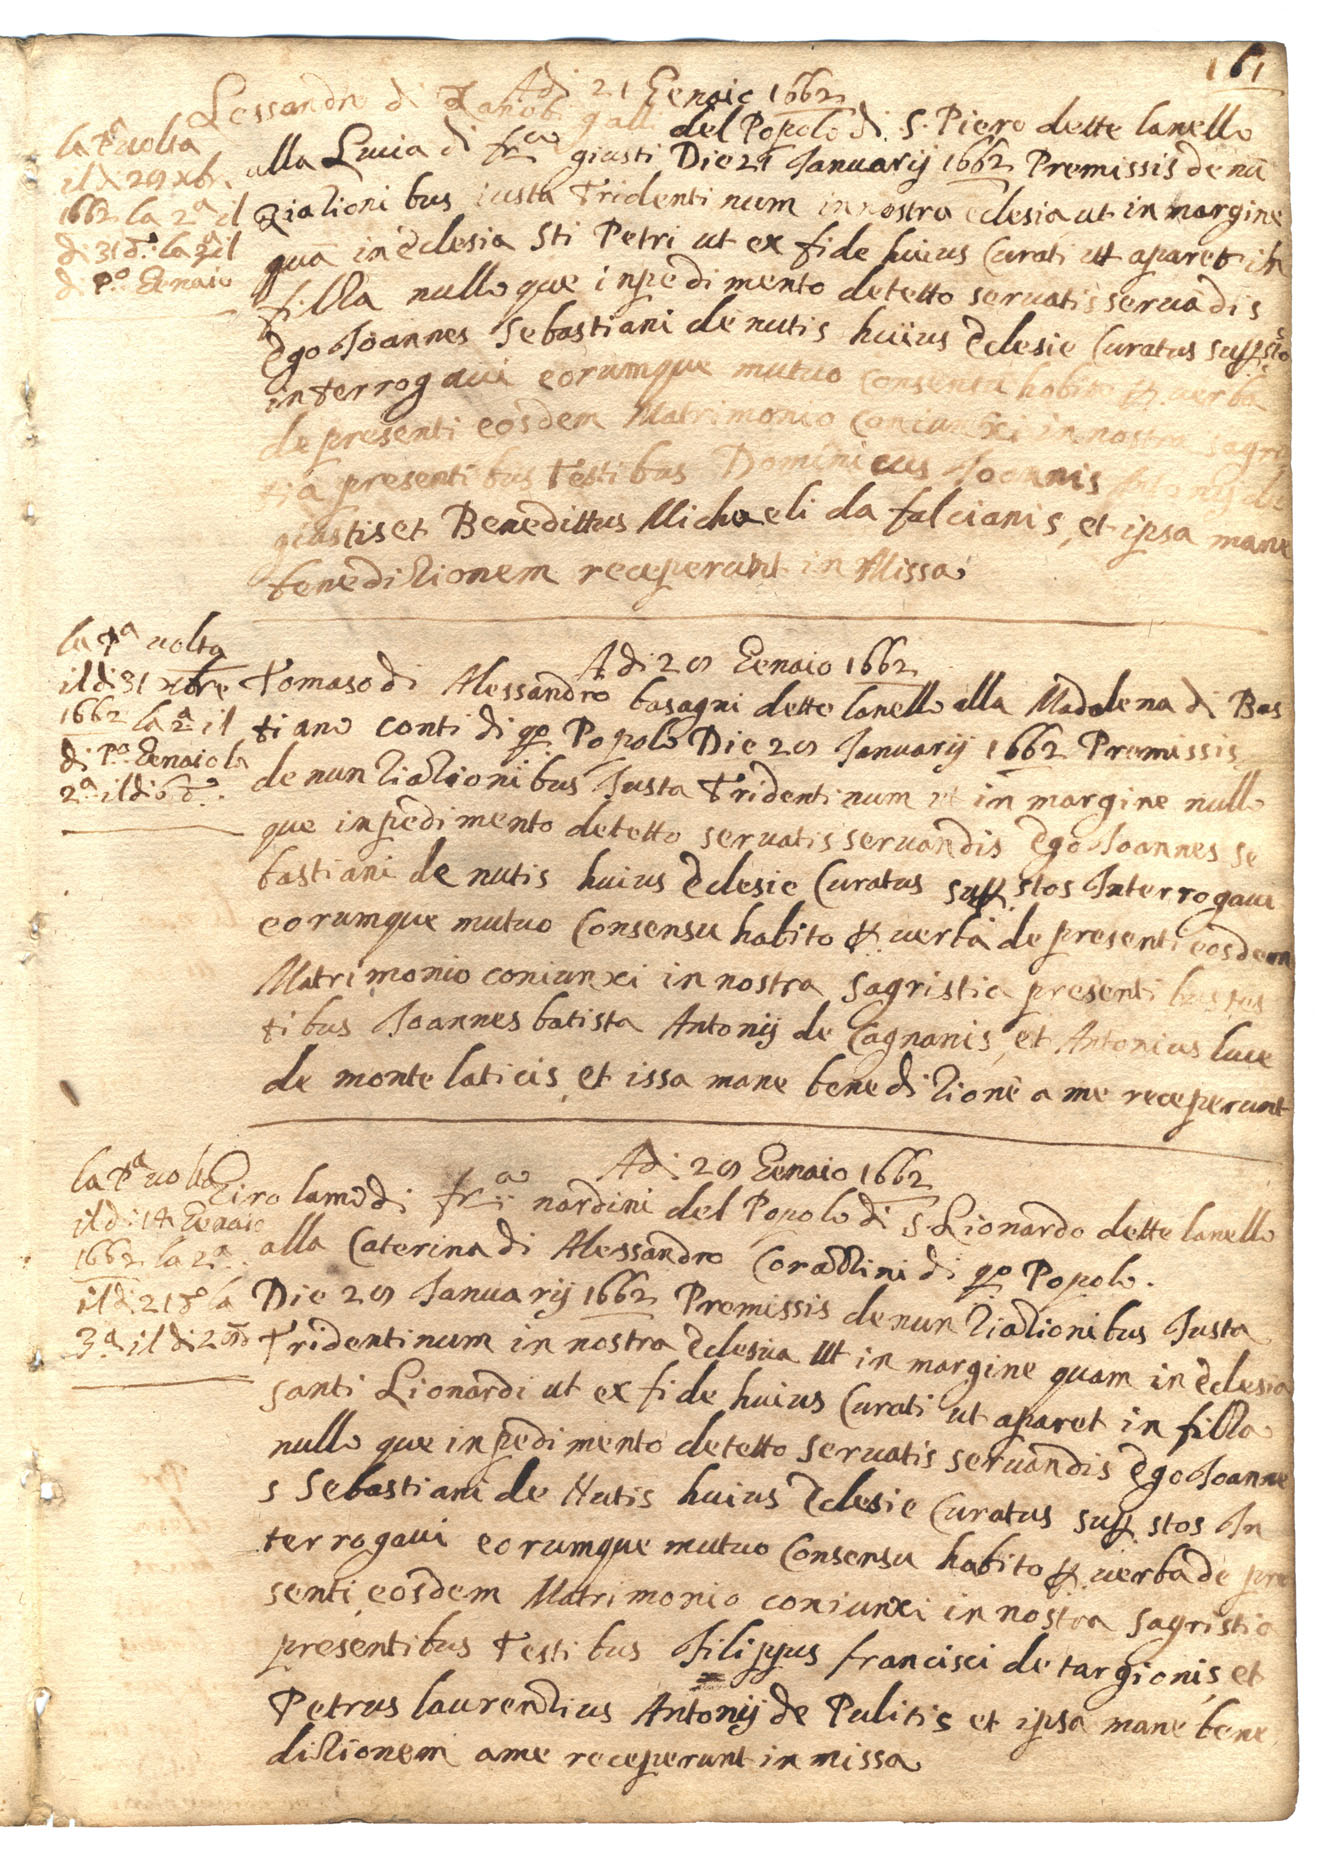 161
Adi 21 Genaio 1662
Lessandro di Zanobi galli del Popolo di S. Piero dette lanello
la Pa uolta
il di 29 xbr.
1662 la 2a il
di 31 do. la 3a il
di Po. Genaio
alla Lucia di frco giusti Die 21 Januarij 1662 Premissis denū
Ziationi bus iusta Tridenti num in nostra eclesia ut in margine
quā in eclesia Sti Petri ut ex fide huius Curati ut aparet in
filza nulloque inpedimento detetto seruatis seruādis
Ego Joannes Sebastiani de nutis huius Eclesie Curatus supstos
interrogaui eorumque mutuo consensu habito P. uerba
de presenti eosdem Matrimonio Coniunxi in nostra sagris
tia presentibus Testibus Dominicus Joannis Antonij de
giustis et Benedittus Michaeli da falcianis, et ipsa mane
beneditionem receperunt in Missa
la Pa uolta
il di 31 xbre
1662 la 2a il
di Po. Genaio la
2a. il di 6 do.
Adi 29 Genaio 1662
Tomaso di Alessandro basagni dette lanello alla Madalena di Bas
tiano conti di qo Popolo Die 29 Januarij 1662 Premissis
denuntiationibus Justa Tridentinum ut in margine nullo
que inpedimento detetto seruatis seruandis Ego Joannes se
bastiani de nutis huius Eclesie Curatus sup stos Interrogaui
eorumque mutuo Consensu habito P. uerba de presenti eosdem
Matrimonio coniunxi in nostra sagristia presenti bus tes
tibus Joannes batista Antonij de Cagnanis, et Antonius luce
de monte laticis, et issa mane beneditionē a me receperunt
la Pa uolta
il di 14 Genaio
1662 la 2a.
il di 21 do la
3a. il di 29 do
Adi 29 Genaio 1662
Girolamo di frco nardini del Popolo di S Lionardo dette lanello
alla Caterina di Alessandro Corazzini di qo Popolo.
Die 29 Januarij 1662 Premissis denuntiationibus Justa
Tridentinum in nostra Eclesia Ut in margine quam in Eclesia
santi Lionardi ut ex fide huius Curati ut aparet in filza
nullo que inpedimento detetto seruatis seruandis Ego Joanne
s Sebastiani de Nutis huius Eclesie Curatus sup stos In
terrogaui eorumque mutuo Consensu habito P. uerba de pre
senti eosdem Matrimonio coniunxi in nostra sagristia
presentibus Testibus Filippus francisci de targionis, et
Petrus laurentius Antonij de Pulitis et ipsa mane bene
ditionem a me receperunt in missa